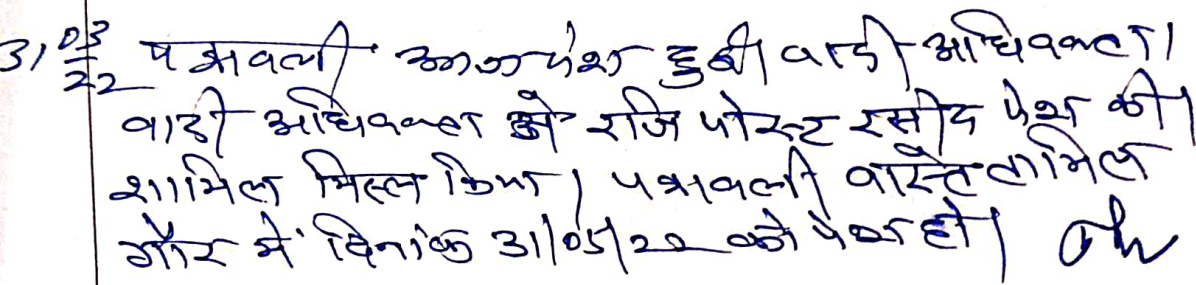 31/03/22 पत्रावली आज पेश हुयी वादी अधिवक्ता।
वादी अधिवक्ता ने रजि पोस्ट रसीद पेश की।
शामिल मिस्ल किया। पत्रावली वास्ते तामिल
गौर में दिनांक 31/05/22 को पेश हो।